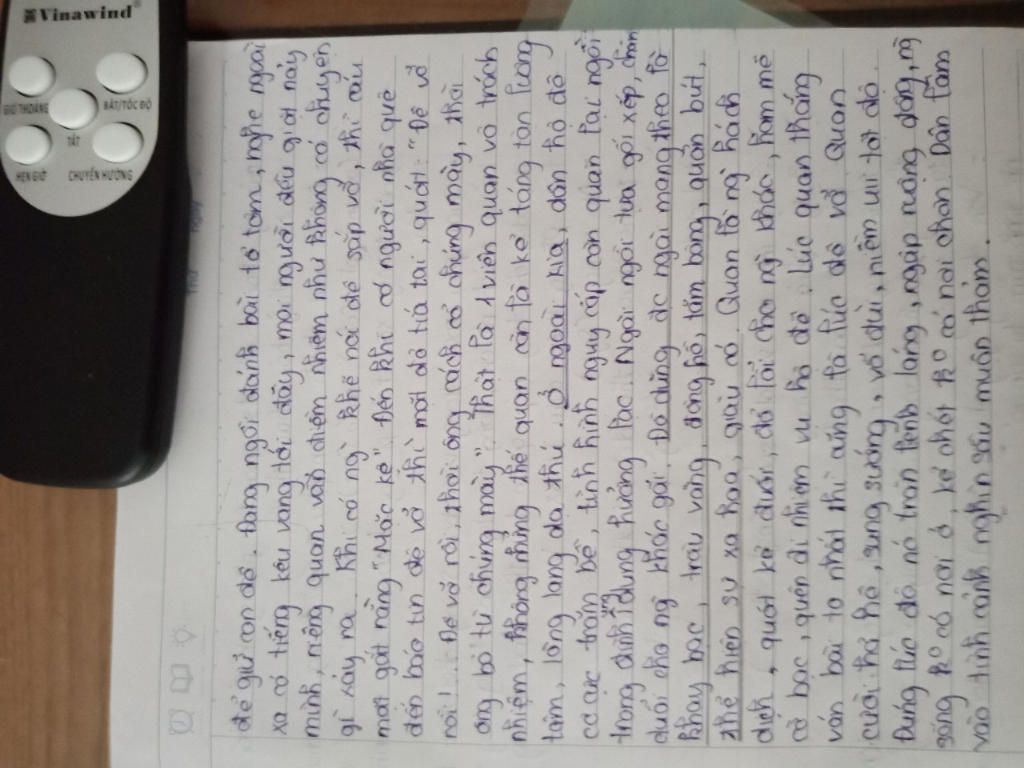 Vinawind
GIÓ THOẢNG
BẬT/TỐC ĐỘ
TẮT
HẸN GIỜ
CHUYỂN HƯỚNG
Thứ
Ngày
để giữ con đê. Đang ngồi đánh bài tổ tôm, nghe ngoài
xa có tiếng kêu vang tới đấy, mọi người đều giật nảy
mình, riêng quan vẫn điềm nhiêm như không có chuyện
gì xảy ra. Khi có ng khẽ nói đê sắp vỡ, thì cáu
mặt gắt rằng "Mặc kệ". Đến khi có người nhà quê
đến báo tin đê vỡ thì mặt đỏ tía tai, quát: "Đê vỡ
rồi!... Đê vỡ rồi, thời ông cách cổ chúng mày, thời
ông bỏ tù chúng mày". Thật là 1 viên quan vô trách
nhiệm, không những thế quan còn là kẻ táng tận lương
tâm, lòng lang dạ thú. Ở ngoài kia, dân hộ đê
cơ cực trăm bề, tình hình nguy cấp còn quan lại ngồi
trong đình ung dung hưởng lạc. Ngài ngồi tựa gối xếp, chân
duỗi cho ng khác gãi. Đồ dùng đc ngài mang theo là
khay bạc, trầu vàng, đồng hồ, tăm bông, quản bút,
thể hiện sự xa hoa, giàu có. Quan là ng hách
dịch, quát kẻ dưới, đổ lỗi cho ng khác, ham mê
cờ bạc, quên đi nhiệm vụ hộ đê. Lúc quan thắng
ván bài to nhất thì cũng là lúc đê vỡ. Quan
cười hả hê, sung sướng, vỗ đùi, niềm vui tột độ.
Đúng lúc đó nc tràn lênh láng, ngập ruộng đồng, ng
sống ko có nơi ở, kẻ chết ko có nơi chôn. Dân lầm
vào tình cảnh nghìn sầu muôn thảm.